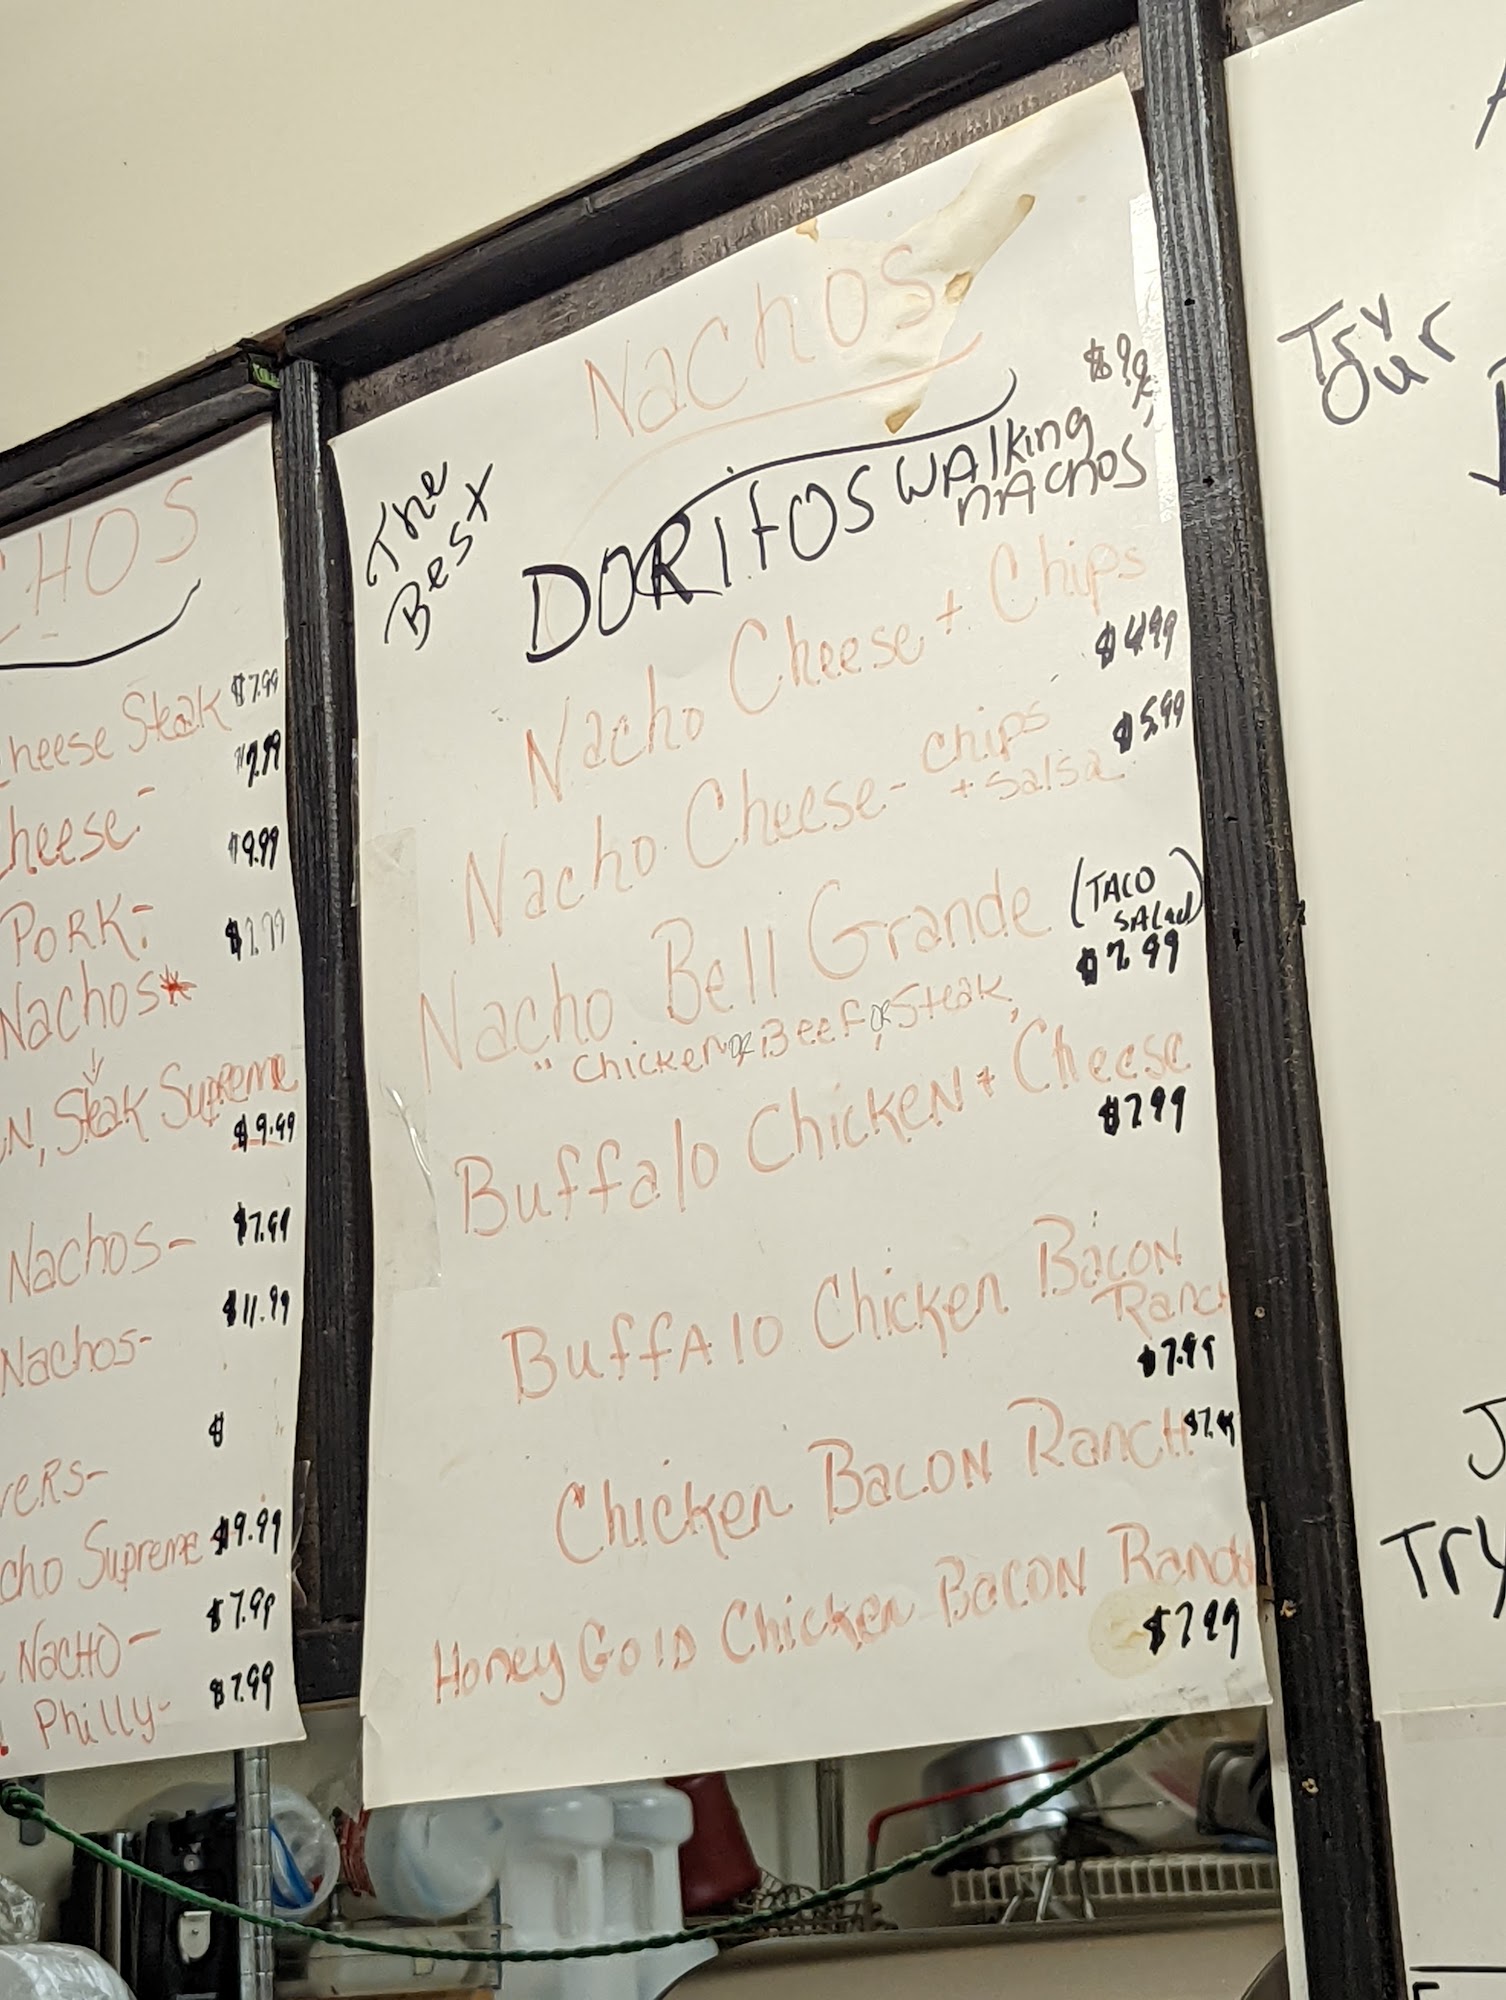 CHOS
Cheese Steak $7.99
Cheese- $7.99
$9.99
PORK:
Nachos*
N, Steak Supreme
$9.99
Nachos- $7.99
Nachos- $11.99
$
VERS-
cho Supreme $9.99
NACHO- $7.99
Philly- $7.99
NACHOS
The
Best
DORITOS WALKing
NACHOS
Nacho Cheese + Chips
$4.99
Nacho Cheese- Chips
+ Salsa $5.99
Nacho Bell Grande (TACO
SALAd)
$7.99
"Chicken OR Beef, OR Steak
Buffalo Chicken + Cheese
$7.99
BuffALO Chicken BACON
Ranch
$7.99
Chicken BACON RANCH
Honey GOLD Chicken BACON Ranch
$7.99
Try
Our
J
Try